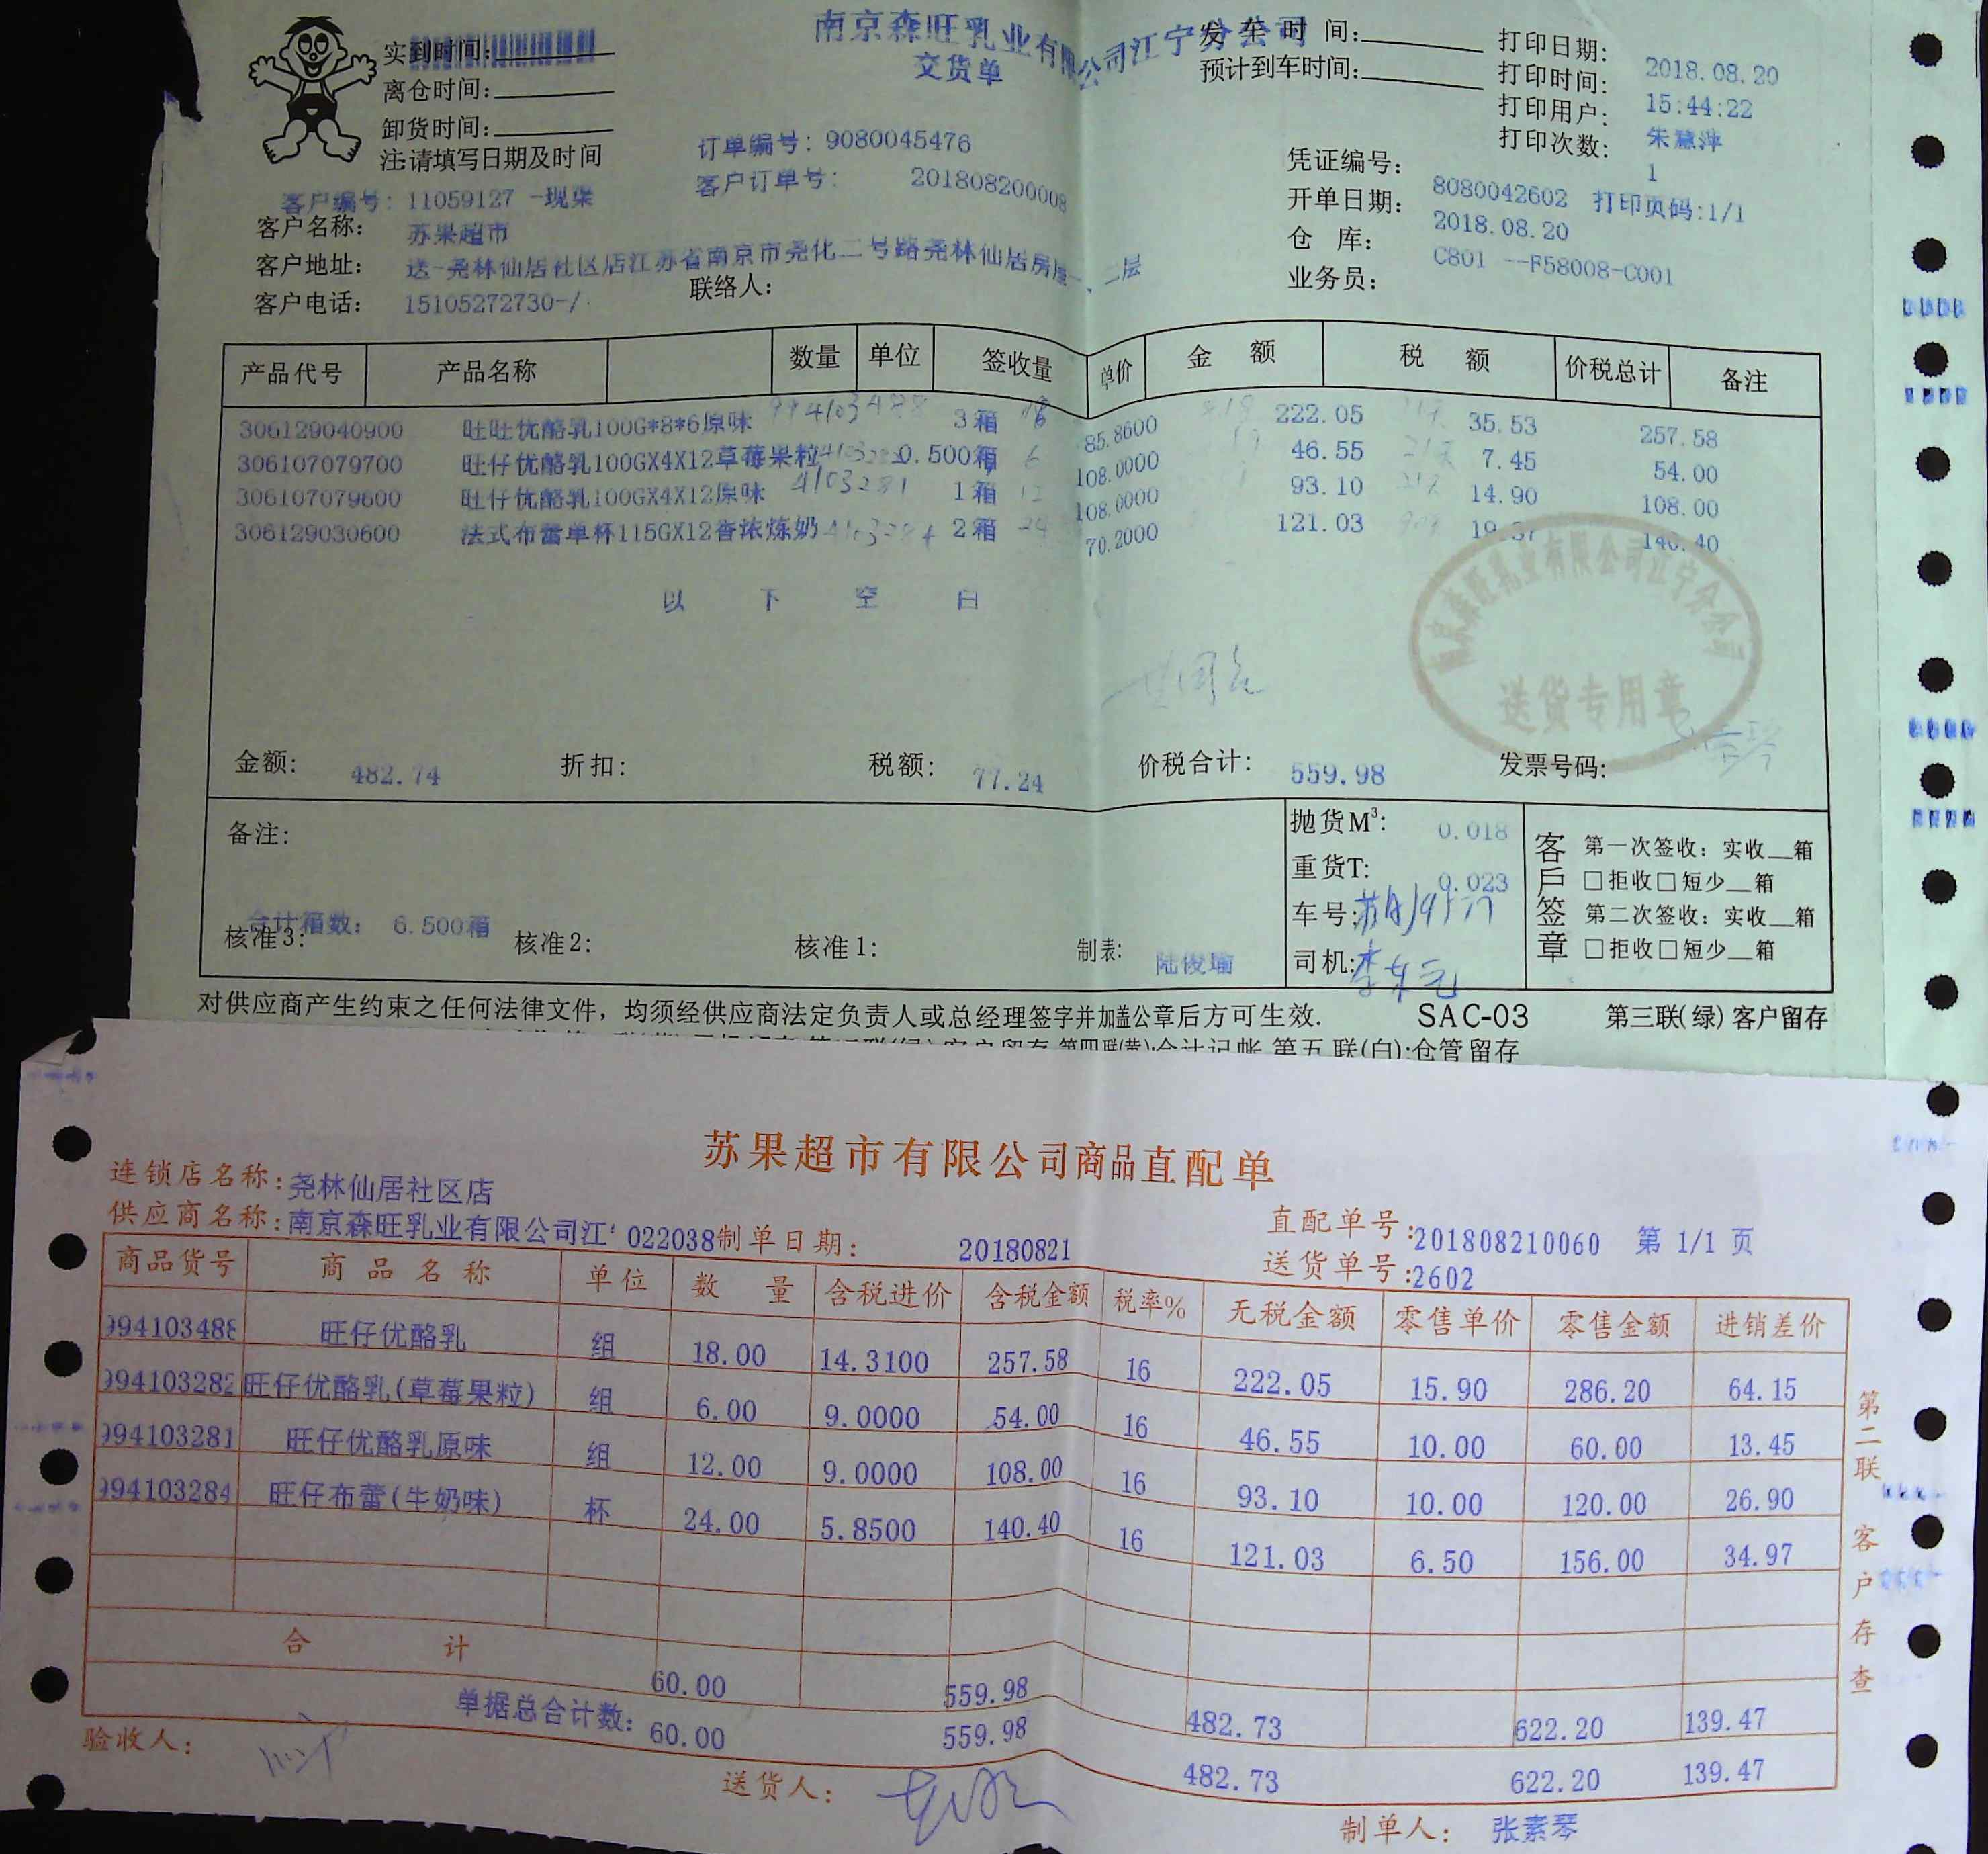 南京森旺乳业有限公司江宁分公司
交货单
实到时间:
离仓时间:
卸货时间:
注:请填写日期及时间
发车时间:
预计到车时间:
打印日期: 2018.08.20
打印时间: 15:44:22
打印用户: 朱慧萍
打印次数: 1
订单编号: 9080045476
客户订单号: 201808200008
凭证编号: 8080042602 打印页码:1/1
开单日期: 2018.08.20
仓库: C801 --F58008-C001
业务员:
客户编号: 11059127 -现渠
客户名称: 苏果超市
客户地址: 送-尧林仙居社区店江苏省南京市尧化二号路尧林仙居房屋一、二层
客户电话: 15105272730-/
联络人:
产品代号 产品名称 数量 单位 签收量 单价 金额 税额 价税总计 备注
306129040900 旺旺优酪乳100G*8*6原味 994103488 3箱 18 85.8600 222.05 35.53 257.58
306107079700 旺仔优酪乳100GX4X12草莓果粒 0.500箱 6 108.0000 46.55 7.45 54.00
306107079600 旺仔优酪乳100GX4X12原味 4103281 1箱 12 108.0000 93.10 14.90 108.00
306129030600 法式布蕾单杯115GX12香浓炼奶 4103284 2箱 24 70.2000 121.03 19.37 140.40
以下空白
南京森旺乳业有限公司江宁分公司
送货专用章
金额: 482.74 折扣: 税额: 77.24 价税合计: 559.98 发票号码:
备注:
合计箱数: 6.500箱
核准3: 核准2: 核准1: 制表: 陆俊瑜
抛货M³: 0.018
重货T: 0.023
车号:
司机:
客戶签章
第一次签收: 实收__箱
□拒收□短少__箱
第二次签收: 实收__箱
□拒收□短少__箱
对供应商产生约束之任何法律文件，均须经供应商法定负责人或总经理签字并加盖公章后方可生效. SAC-03 第三联(绿)客户留存
第四联(黄):会计记帐 第五联(白):仓管留存
苏果超市有限公司商品直配单
连锁店名称:尧林仙居社区店
供应商名称:南京森旺乳业有限公司江' 022038 制单日期: 20180821
直配单号:201808210060 第 1/1 页
送货单号:2602
商品货号 商品名称 单位 数量 含税进价 含税金额 税率% 无税金额 零售单价 零售金额 进销差价
994103488 旺仔优酪乳 组 18.00 14.3100 257.58 16 222.05 15.90 286.20 64.15
994103282 旺仔优酪乳(草莓果粒) 组 6.00 9.0000 54.00 16 46.55 10.00 60.00 13.45
994103281 旺仔优酪乳原味 组 12.00 9.0000 108.00 16 93.10 10.00 120.00 26.90
994103284 旺仔布蕾(牛奶味) 杯 24.00 5.8500 140.40 16 121.03 6.50 156.00 34.97
合计 60.00 559.98 482.73 622.20 139.47
单据总合计数: 60.00 559.98 482.73 622.20 139.47
验收人:
送货人:
制单人: 张素琴
第二联 客户存查